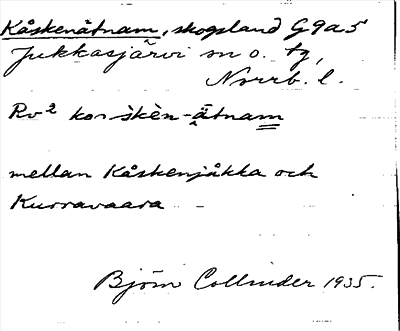 Kåskenätnam, skogsland G9a5
Jukkasjärvi sn o. tg,
Norrb. l.
Rv² kos̀kèn-ätnam
mellan Kåskenjåkka och
Kurravaara
Björn Collinder 1935.